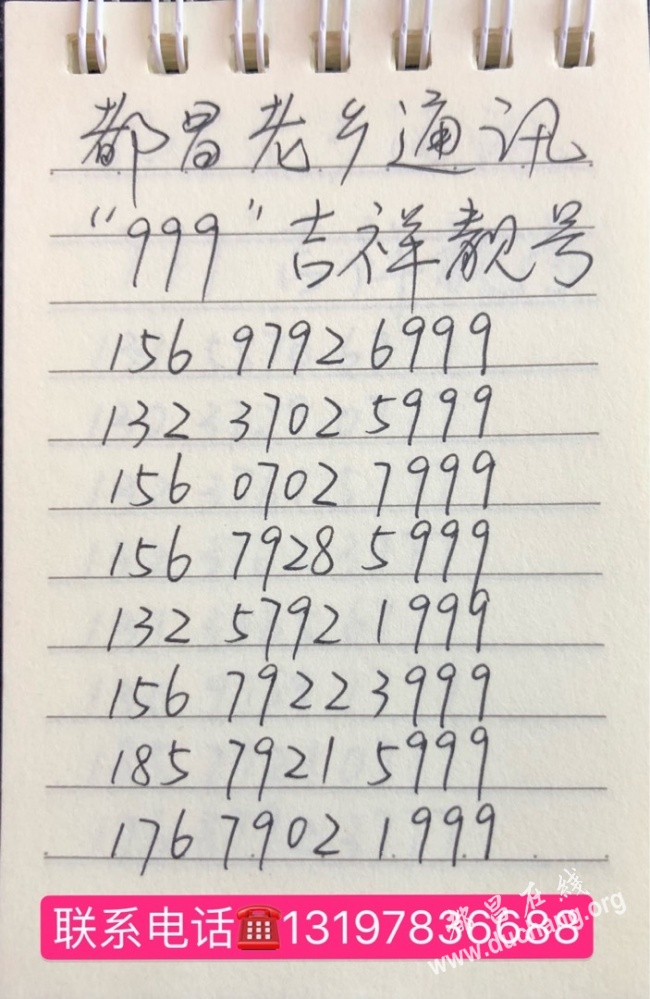 都昌老乡通讯
“999”吉祥靓号
156 9792 6999
132 3702 5999
156 0702 7999
156 7928 5999
132 5792 1999
156 7922 3999
185 7921 5999
176 7902 1999
联系电话☎️13197836688
都昌在线
www.duchang.org